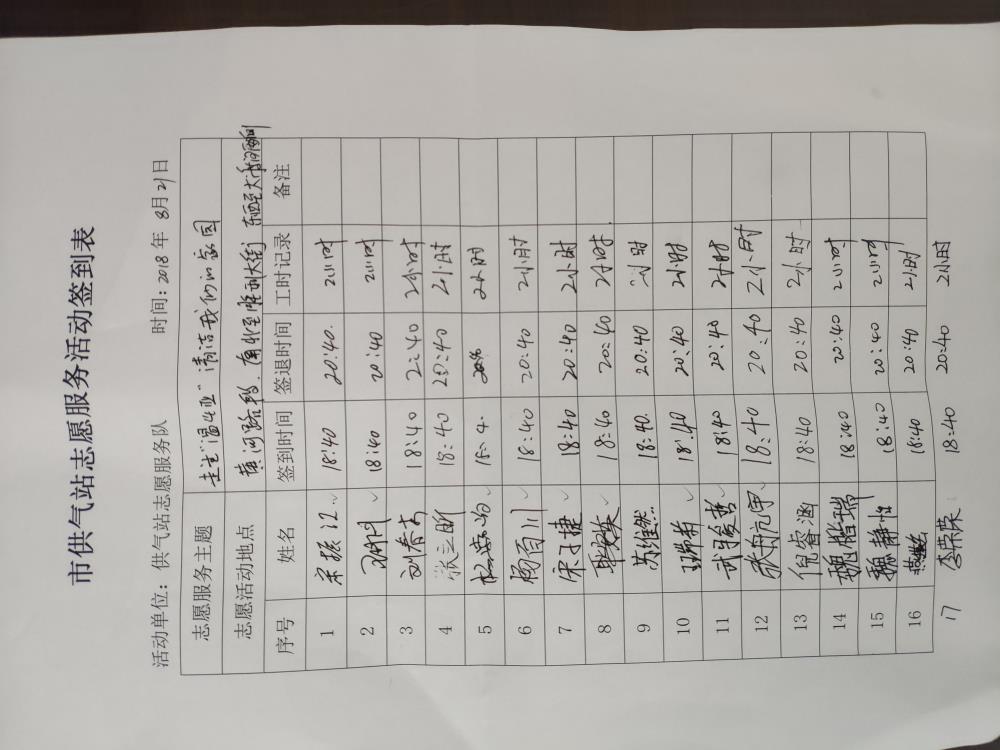 市供气站志愿服务活动签到表
活动单位：供气站志愿服务队 时间：2018年 8月21日
志愿服务主题 清洁我们的家园
志愿活动地点 黄河路
序号 姓名 签到时间 签退时间 工时记录 备注
1 宋振江 18:40 20:40. 2小时
2 18:40 20:40 2小时
3 刘春 18:40 20:40 2小时
4 张立昕 18:40 20:40 2小时
5 2小时
6 杨百川 18:40 20:40 2小时
7 宋子捷 18:40 20:40 2小时
8 18:40 20:40 2小时
9 苏维然 18:40. 20:40 2小时
10 18:40 20:40 2小时
11 武学哲 18:40 20:40 2小时
12 张航伊 18:40 20:40 2小时
13 倪睿涵 18:40 20:40 2小时
14 魏瑞 18:40 20:40 2小时
15 魏静怡 18:40 20:40 2小时
16 18:40 20:40 2小时
17 李荣荣 18:40 20:40 2小时